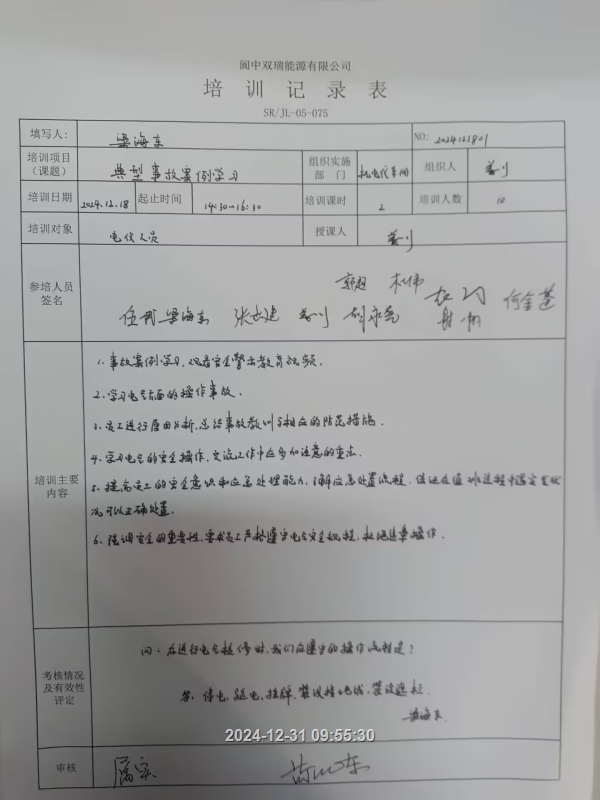 阆中双瑞能源有限公司
培训记录表
SR/JL-05-075
填写人： 梁海东 NO: 2024121801
培训项目（课题） 典型事故案例学习 组织实施部门 机电仪车间 组织人
培训日期 2024.12.18 起止时间 14:30-16:30 培训课时 2 培训人数 10
培训对象 电仪人员 授课人
参培人员签名
梁海东 何金蓬
培训主要内容
1. 事故案例学习、观看安全警示教育视频。
2. 学习电气方面的操作事故。
3. 员工进行原因分析、总结事故教训与相应的防范措施。
4. 学习电气的安全操作、交流工作中应多加注意的重点。
5. 提高员工的安全意识和应急处理能力，了解应急处置流程，保证在值班过程中遇突发状
况可以正确处置。
6. 强调安全的重要性，要求员工严格遵守电气安全规程，杜绝违章操作。
考核情况及有效性评定
问：在进行电气检修时，我们应遵守的操作流程是？
答：停电、验电、挂牌、装设接地线、装设遮栏。
梁海东
2024-12-31 09:55:30
审核 属实